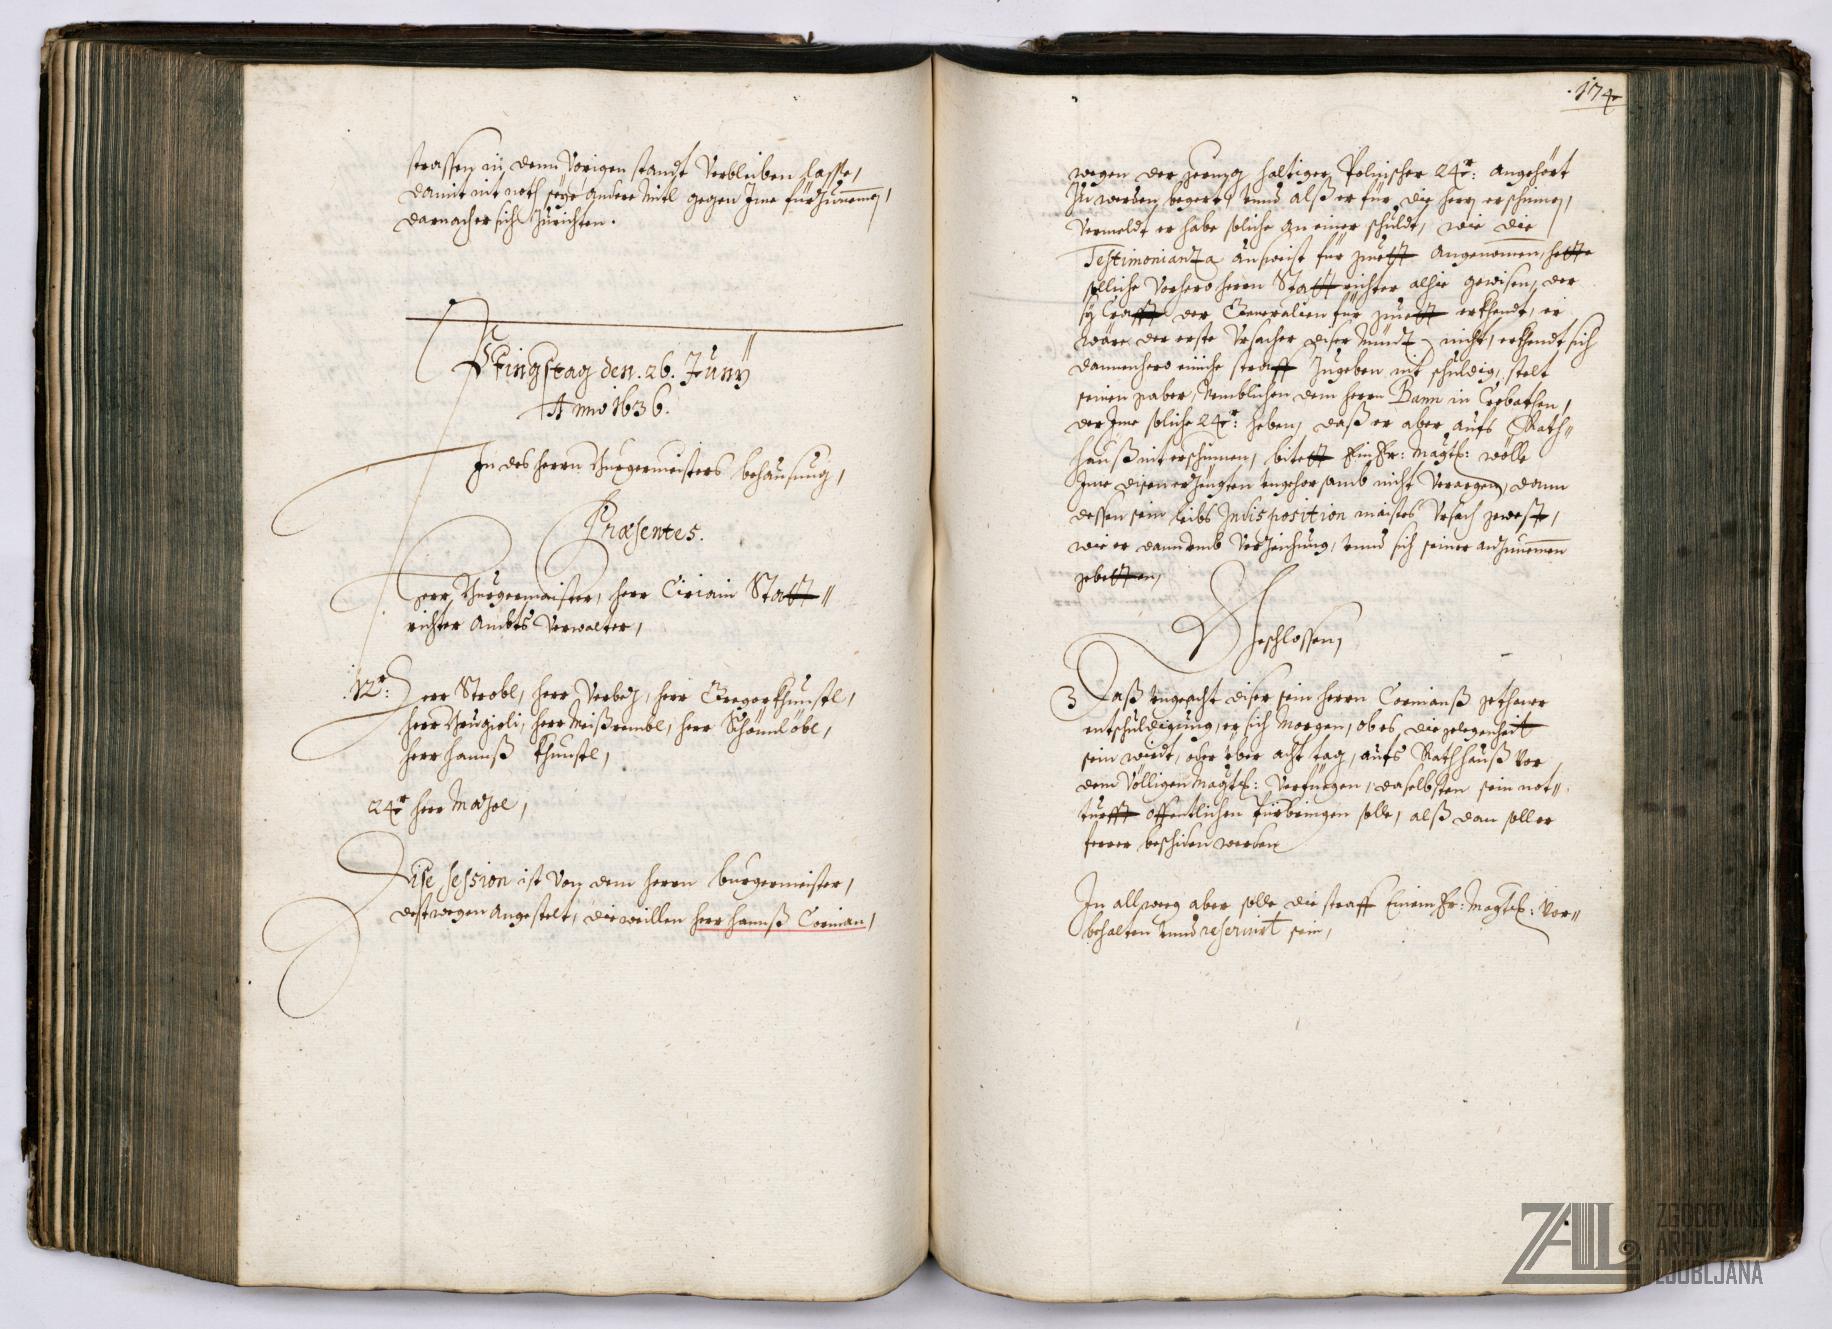 strassen in dem Vorigen standt Verbleiben lasse,
damit nit noth seye andere mitl gegen Ime fürzunemmen,
darnach er sich zurichten.
Pfingstag den .26. Juny
Anno 1636.
In des herrn Burgermeisters behausung,
Præsentes.
Herr Burgermaister, herr Ciriani Statt//
richter Ambts Verwalter,
.12r: Herr Strobl, herr Verbez, herr Gregor Khunstl,
herr herr Schönnlebl,
herr Hannß Khunstl,
24r herr
Dise session ist Von dem herrn burgermeister,
destwegen angestelt, dieweillen herr Hannß Corian,
.174.
wegen der haltigen Polnischer 24r: angehört
Zu werden begert, unnd alß er für die herrn erschinnen,
Vermeldt er habe soliche an einer schuldt, wie die
Testimonianza außweist für guett angenomen, hette
solliche Vorhero herrn Stattrichter alhie gewisen, der
sy Crafft der Generalien für guett erkhendt, er
wäre der erste Ursacher diser Münz nicht, erkhendt sich
dannenhero einiche straff Zugeben nit schuldig, stelt
seinen Nemblichen dem herrn Bann in Crobathen,
der Ime soliche 24r: geben, daß er aber aufs Rath//
hauß nit erschinnen, bitett Ein Er: Magt: wölle
Ime disen erzeugten ungehorsamb nicht Verargen, dann
dessen sein leibs Indisposition maistes Ursach gewest,
wie er dann umb Verzeichung, unnd sich seiner anzunemen
gebetten,
Beschlossen,
3 Daß ungeacht diser sein herrn Corianß gethaner
entschuldigung, er sich Morgen, ob es die gelegenheit
sein wirdt, oder über acht tag, aufs Rathhauß Vor
dem Völligen Magt: Verfüegen, daselbsten sein not//
turfft offentlichen fürbringen solle, alß dan soll er
ferrer beschiden werden
In allweeg aber solle die straff Einem Er: Magt: Vor//
behalten unnd reservirt sein,
ZAL
ZGODOVINSKI
ARHIV
LJUBLJANA